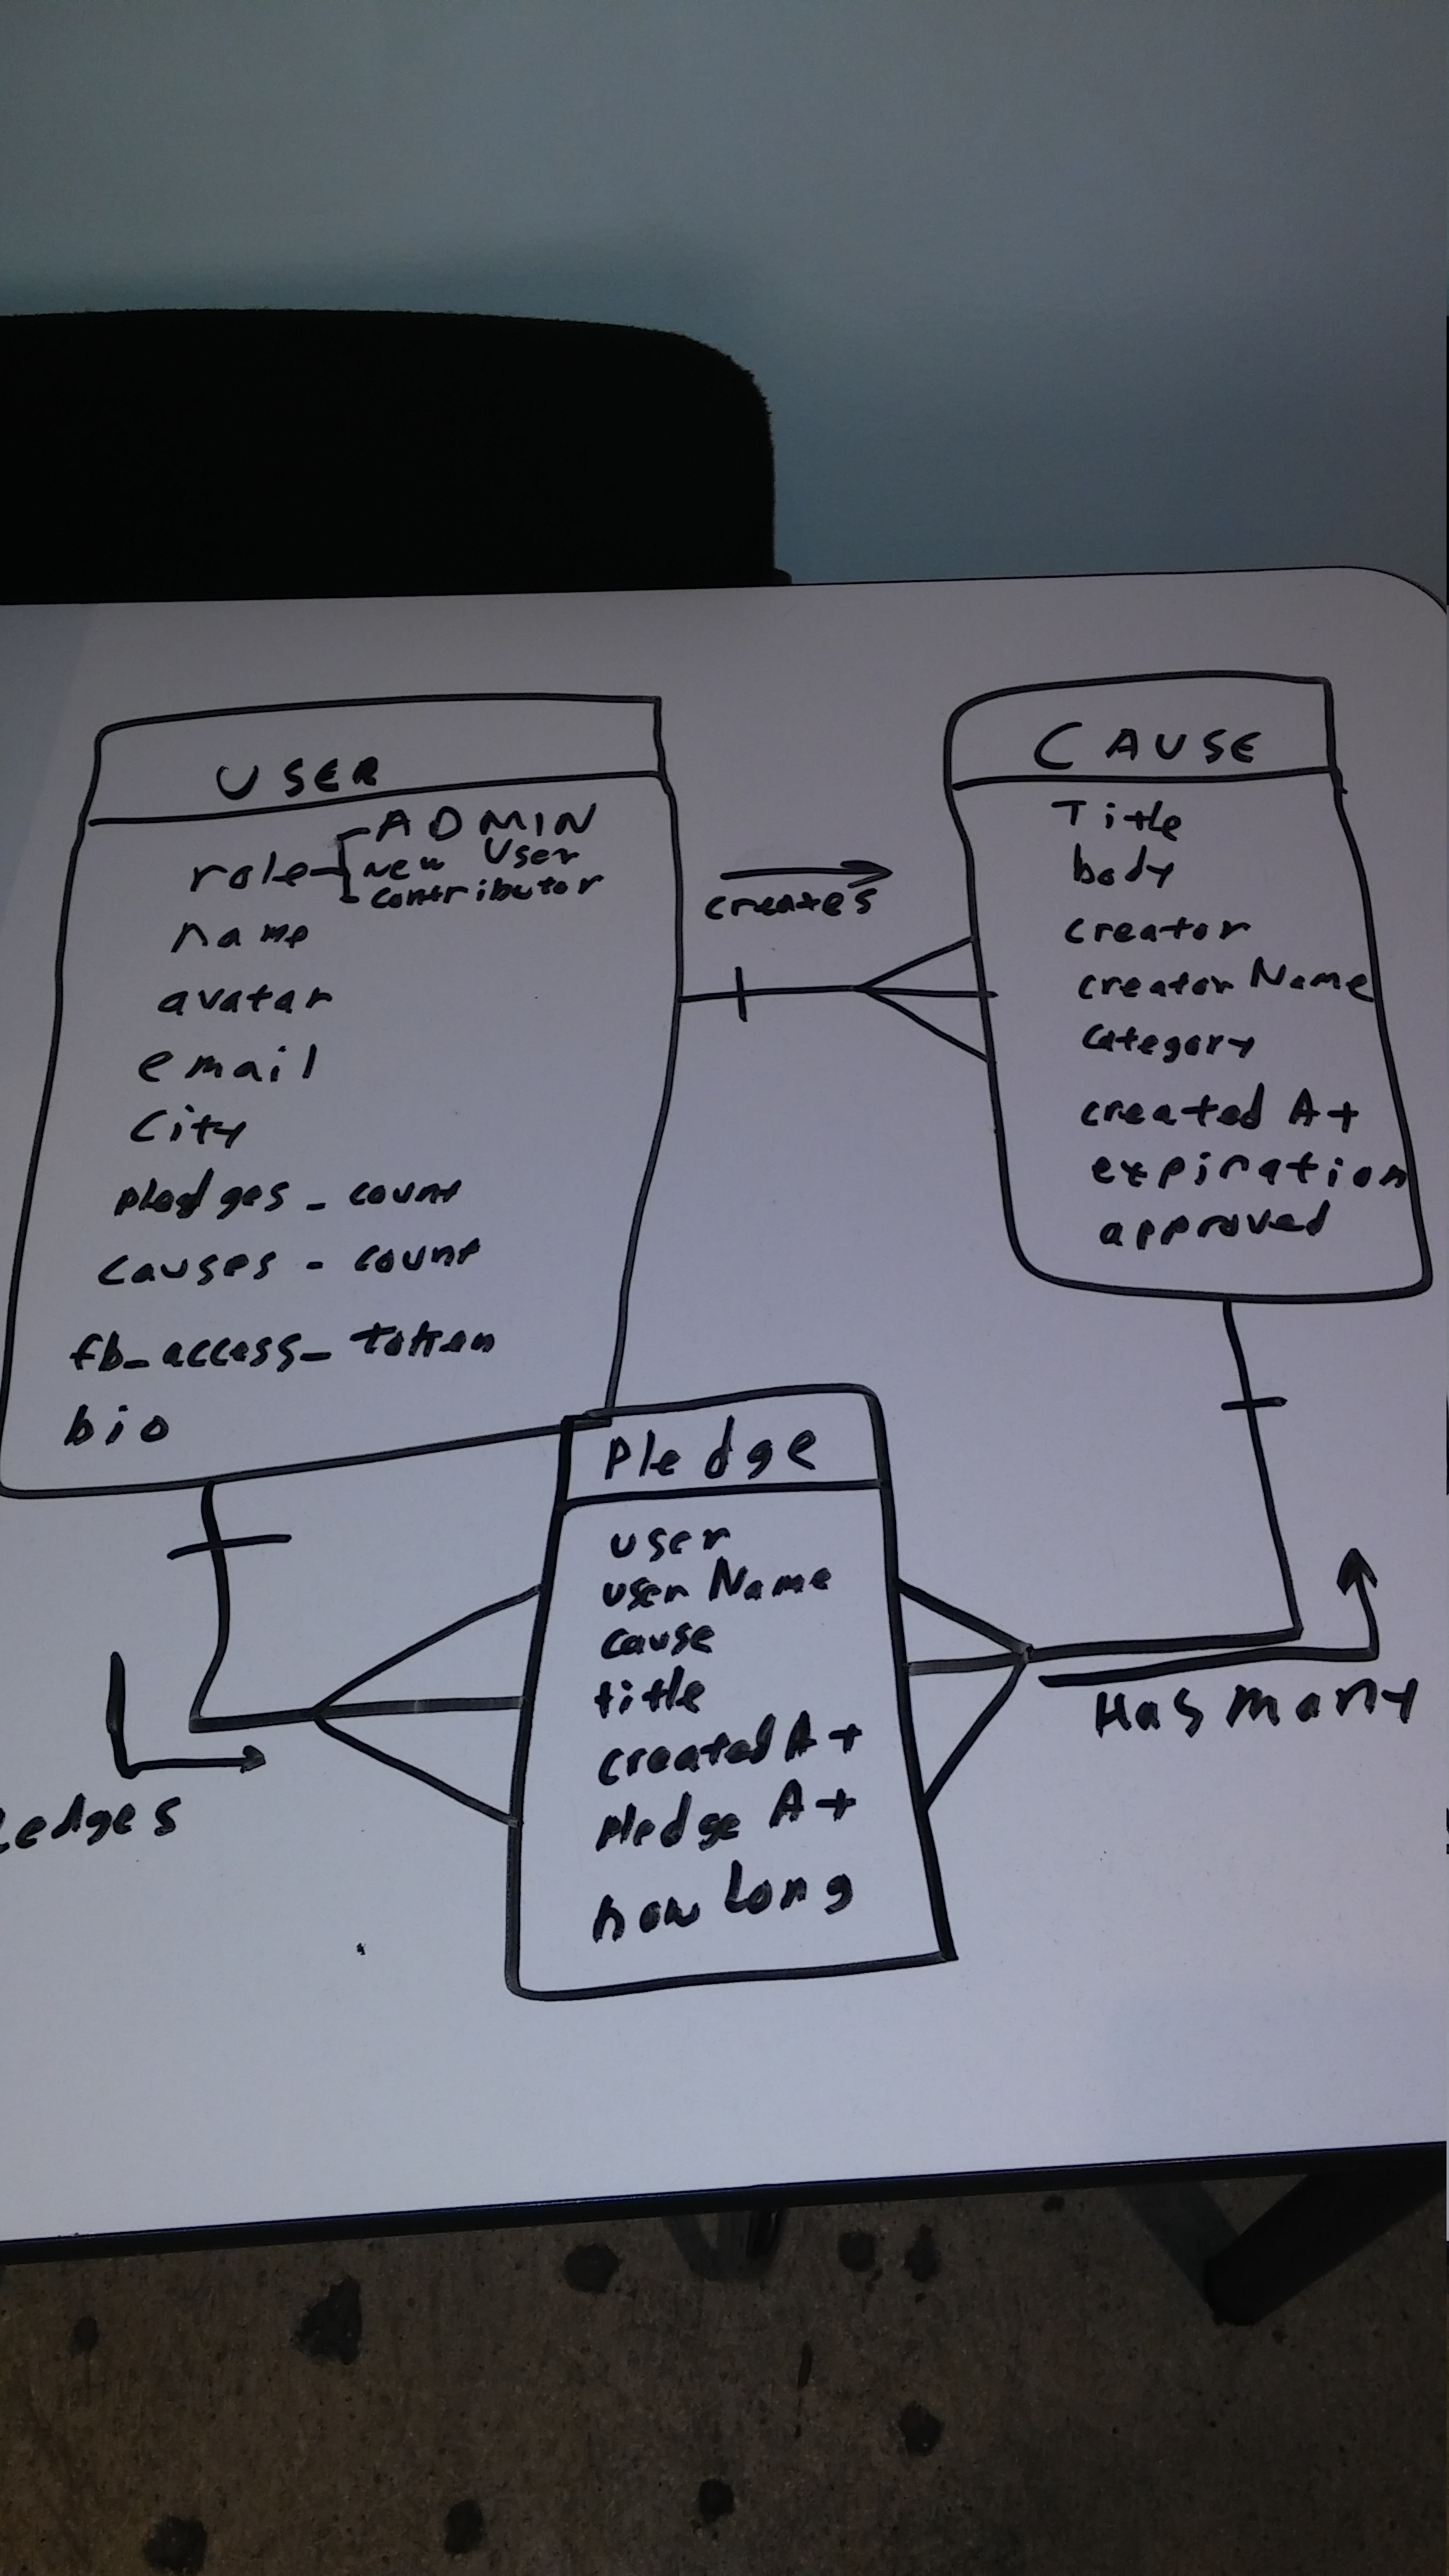 USER
role
ADMIN
New User
contributor
name
avatar
email
City
pledges_count
causes-count
fb_access_token
bio
creates
CAUSE
Title
body
creator
creator Name
category
created At
expiration
approved
Pledge
user
user Name
cause
title
created At
pledge At
how Long
ledges
Has many